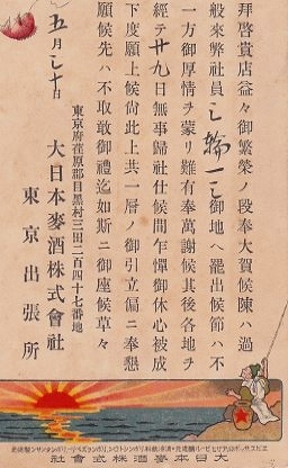 拜啓貴店益々御繁榮ノ段奉大賀候陳ハ過
般來弊社員 御地ヘ罷出候節ハ不
一方御厚情ヲ蒙リ難有奉萬謝候其後各地ヲ
經テ廿九日無事歸社仕候間乍憚御休心被成
下度願上候尚此上共一層ノ御引立偏ニ奉懇
願候先ハ不取敢御禮迄如斯ニ御座候草々
五月 十日
東京府荏原郡目黒村三田二百四十七番地
大日本麥酒株式會社
東京出張所
大日本麥酒株式會社